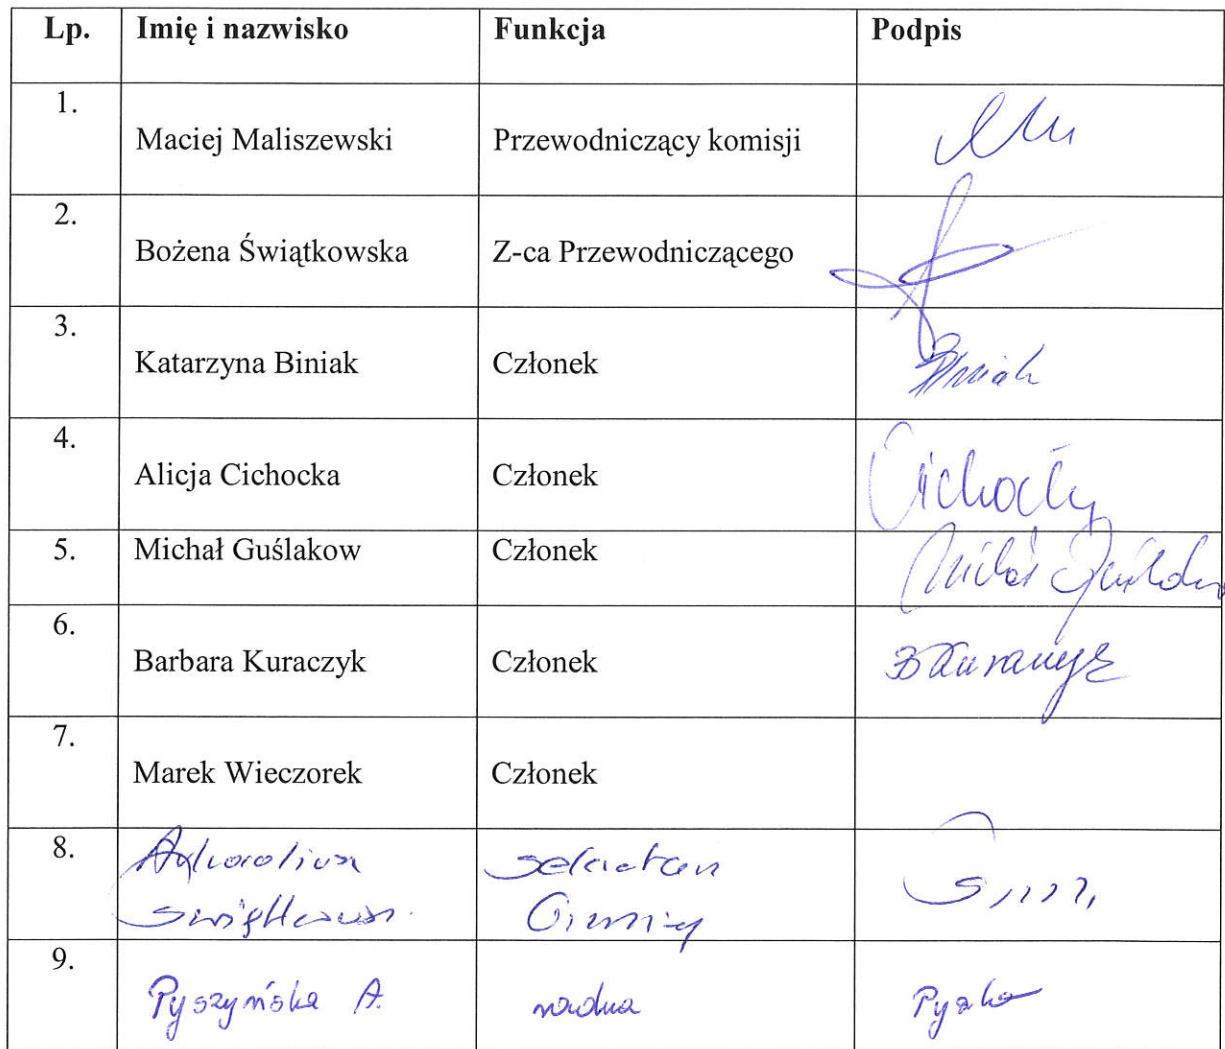 Lp. Imię i nazwisko Funkcja Podpis
1.
Maciej Maliszewski Przewodniczący komisji
2.
Bożena Świątkowska Z-ca Przewodniczącego
3.
Katarzyna Biniak Członek
4.
Alicja Cichocka Członek
5. Michał Guślakow Członek
6.
Barbara Kuraczyk Członek B Kuraczyk
7.
Marek Wieczorek Członek
8.
sekretarz
Gminy
9.
Pyszyńska A. radna